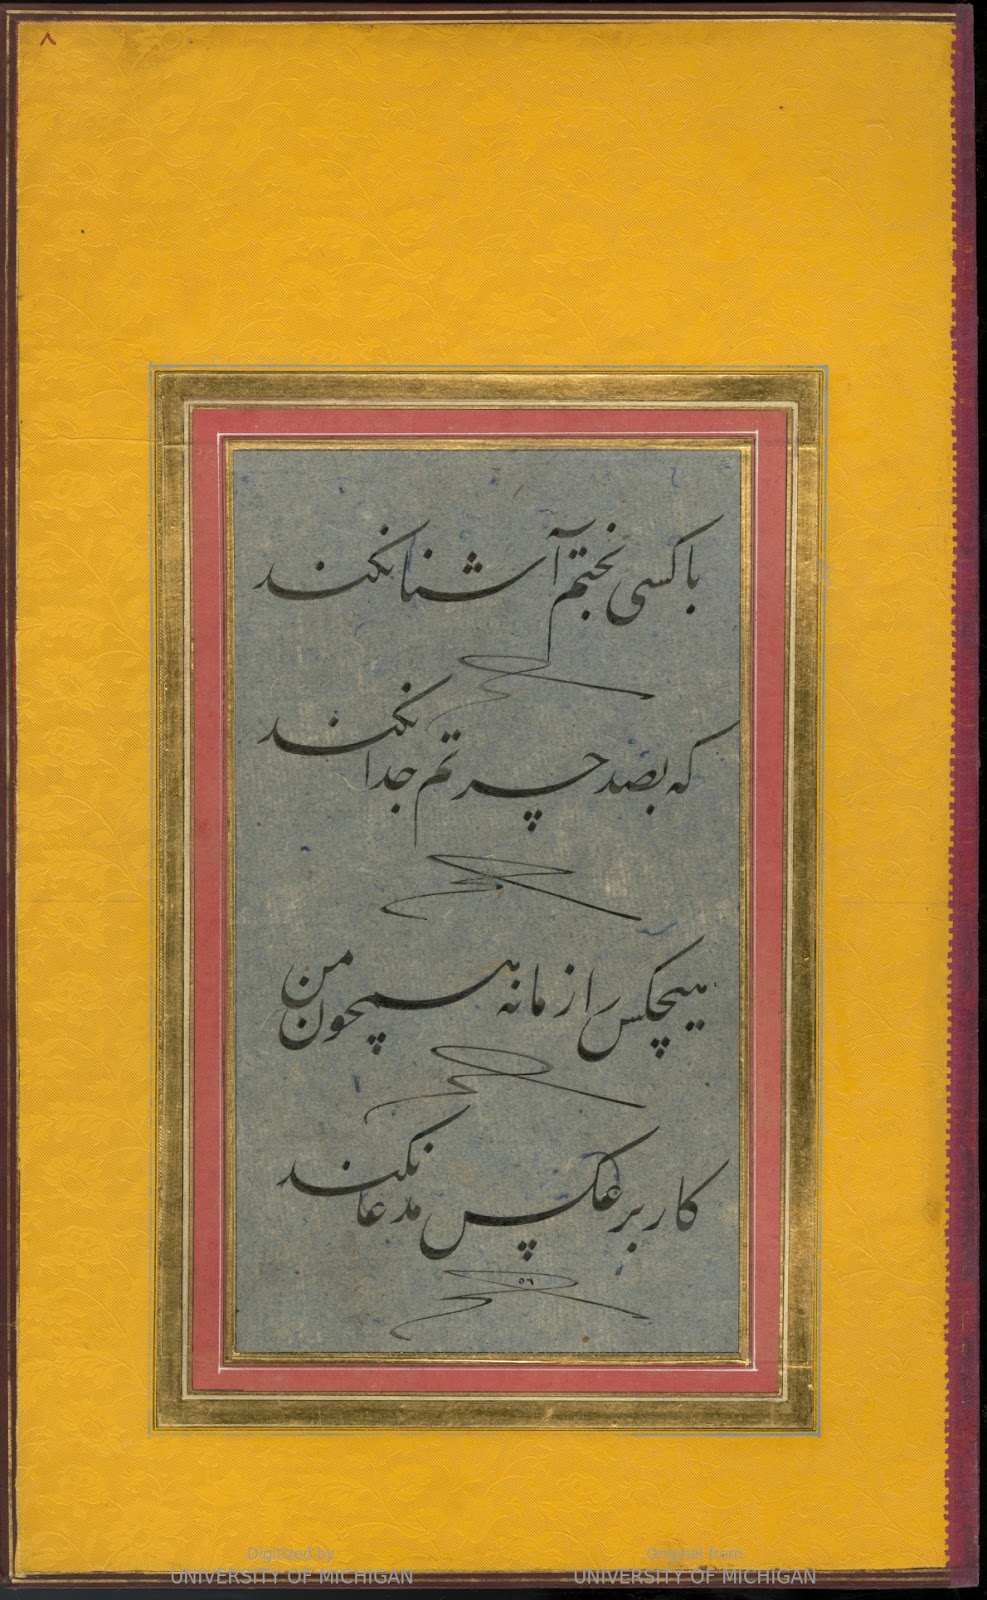 ٨
با کسی بختم آشنا نکند
که بصد حسرتم جدا نکند
هیچکس را زمانه همچون من
کار بر عکس مدعا نکند
٥٦
Digitized by
UNIVERSITY OF MICHIGAN
Original from
UNIVERSITY OF MICHIGAN